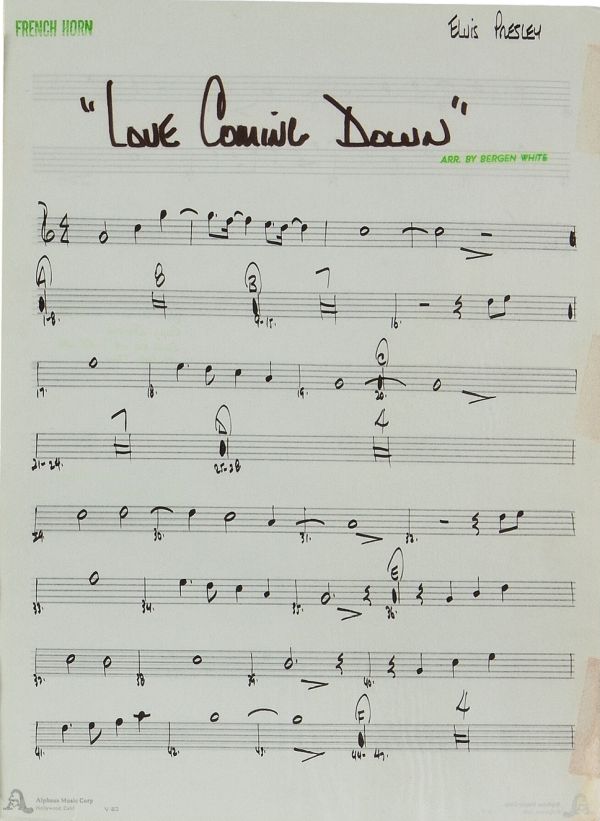 FRENCH HORN
ELVIS PRESLEY
"LOVE COMING DOWN"
ARR. BY BERGEN WHITE
4 4
A 8 B 7
1-8. 9-15. 16.
C
17. 18. 19. 20.
7 D 4
21-24. 25-28
29. 30. 31. 32.
E
33. 34. 35. 36.
37. 38 39. 40.
F 4
41. 42. 43. 44-47.
Alpheus Music Corp
Hollywood, Calif
V-80